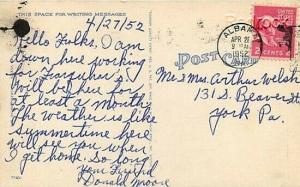 THIS SPACE FOR WRITING MESSAGES
4/27/52
Hello Folks, I am
down here working
for
Will be here for
at least a month
The weather is like
summertime here
will see you when
I get home. So long
Your Friend
Donald Moore
POST
ALBANY
APR 28
9 PM
1952
2 CENTS 2
Mr & Mrs Arthur Welsh
131 S. Beaver St
York Pa.